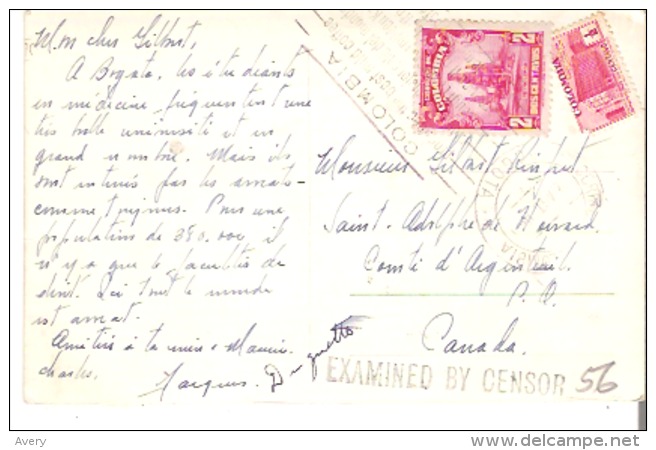 Mon cher Gilbert,
A Bogota, les étudiants
en médecine fréquentent une
très belle université et en
grand nombre. Mais ils
sont
comme toujours. Pour une
population de 380.000, il
n'y a que 6 facultés de
droit. Ici tout le monde
est avocat.
Amitiés à ta mère & Maurice
Charles.
Jacques. Duquette
COLOMBIA
2
2
COLOMBIA
Monsieur Gilbert
Saint-Adolphe de Howard.
Comté d'Argenteuil.
P.Q.
Canada.
EXAMINED BY CENSOR 56
Avery
delcampe.net